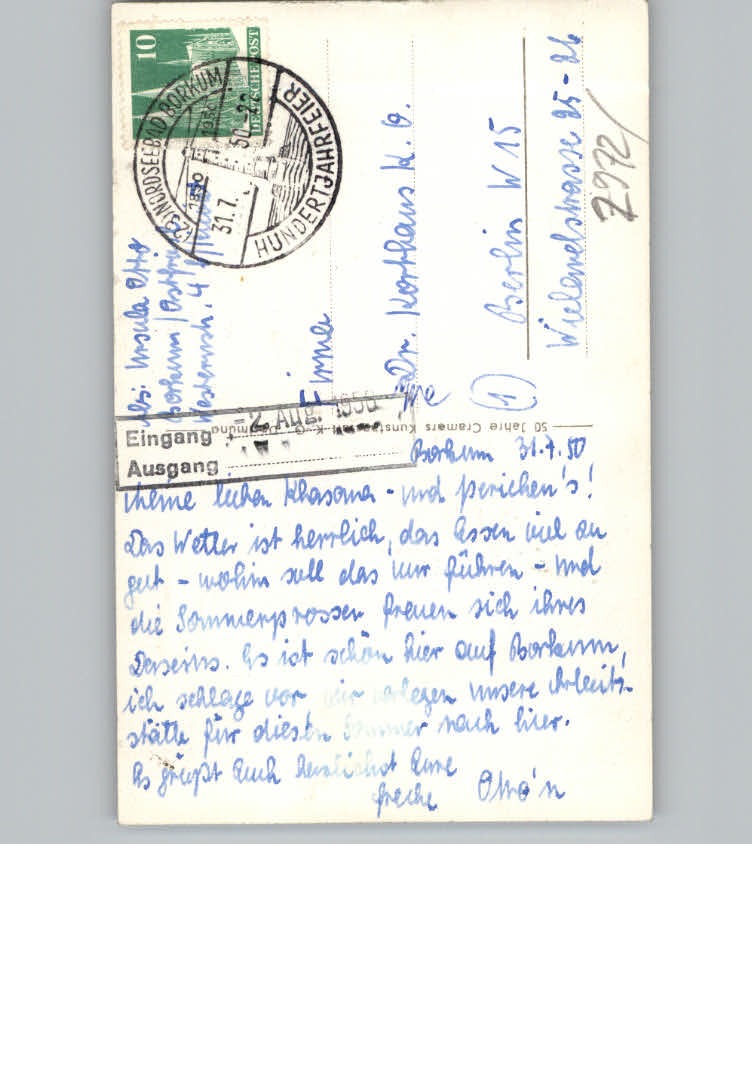 10
DEUTSCHE POST
(23) NORDSEEBAD BORKUM
1850
1950
31.7.50
HUNDERTJAHRFEIER
Abs: Ursula Otto
Borkum/Ostfr.
Westerstr. 4
Firma
Dr. Korthaus K. G.
(1) Berlin W 15
Wielandstrasse 25-26
7972/
50 Jahre Cramers Kunstanstalt K.-G. Dortmund
Eingang -2. Aug. 1950
Ausgang
Borkum 31.7.50
Meine lieben - und !
Das Wetter ist herrlich, das Essen viel zu
gut - wohin soll das nur führen - und
die Sommersprossen freuen sich ihres
Daseins. Es ist schön hier auf Borkum,
ich schlage vor, wir verlegen unsere Arbeits-
stätte für diesen Sommer nach hier.
Es grüßt Euch herzlichst Eure
freche